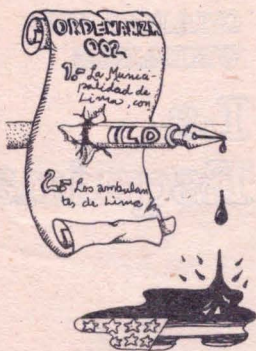 ORDENANZA
002
1º La Munici-
palidad de
Lima, con
ILD
2º Los ambulan
tes de Lima